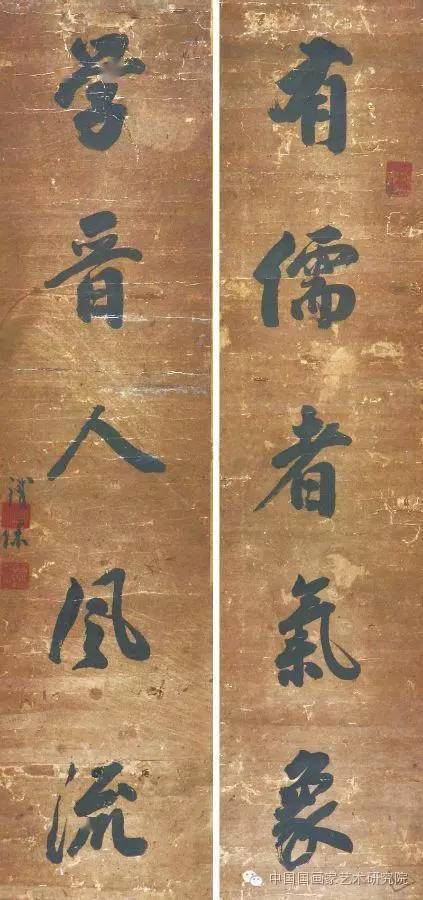 有儒者氣象
学晋人風流
鐵保
中国国画家艺术研究院